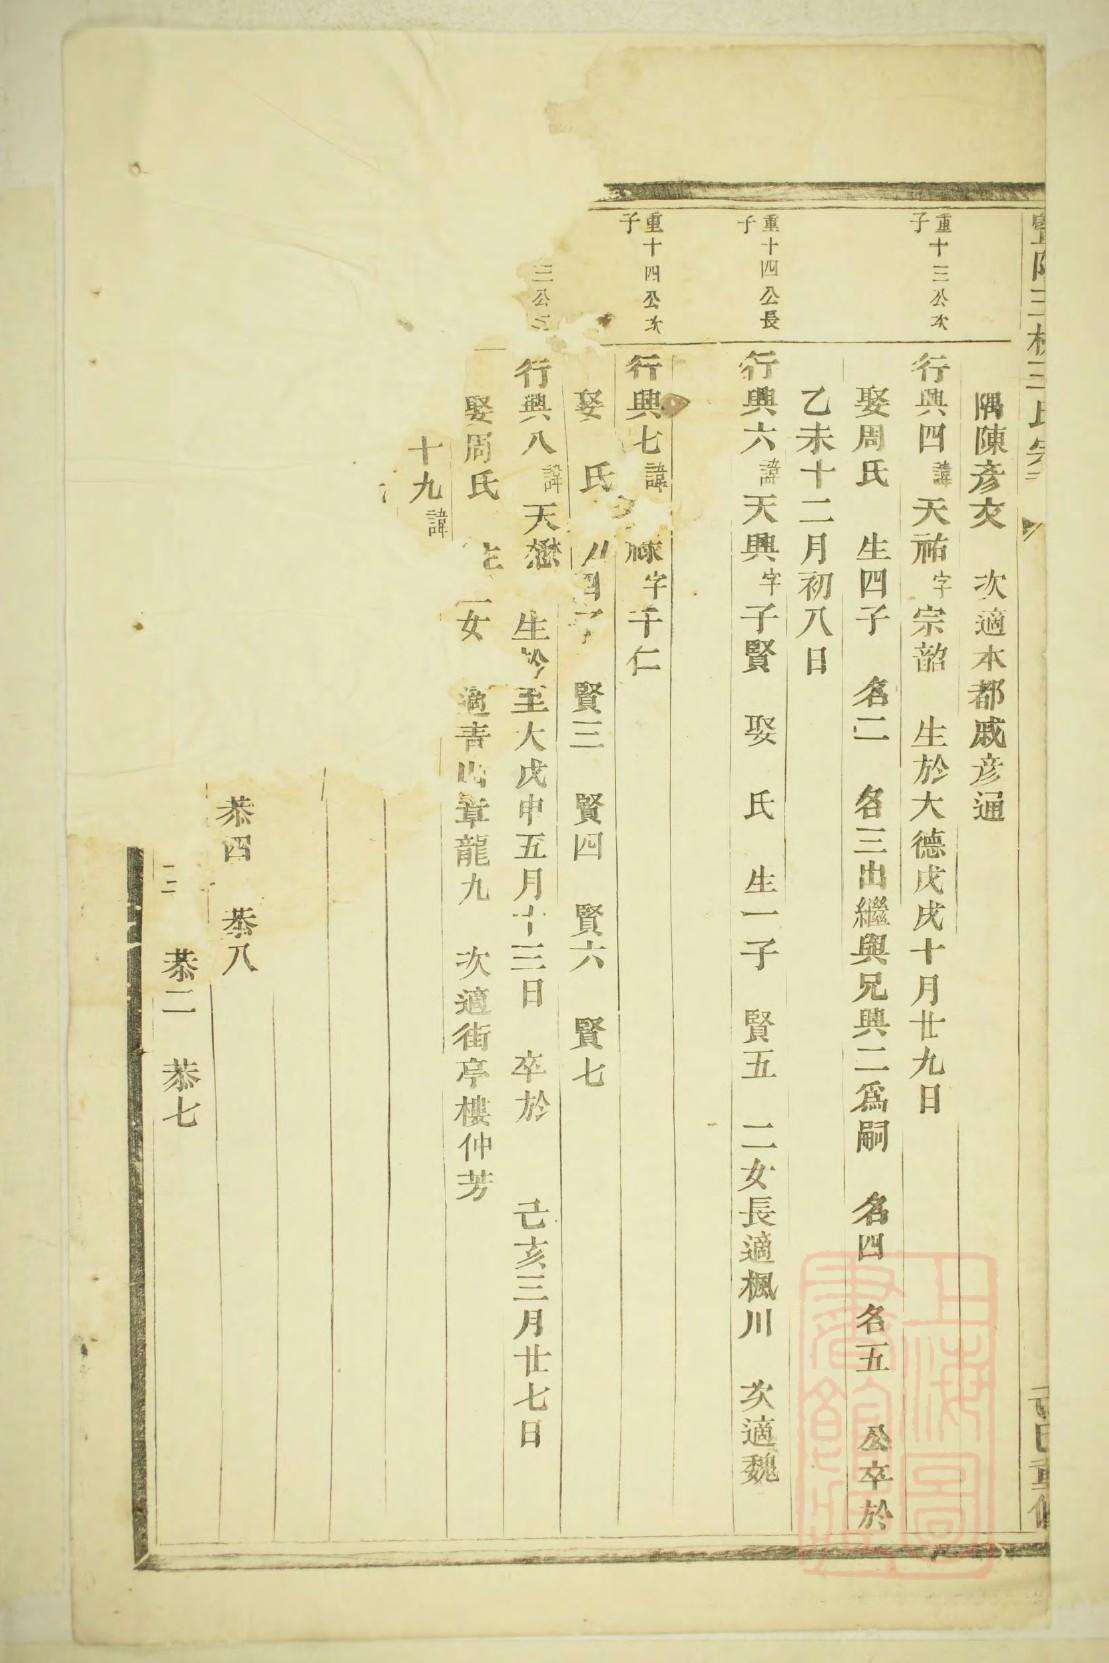 隅陳彥文　次適本都戚彥通
重十三公次子
行興四諱天祐字宗韶　生於大德戊戌十月廿九日
娶周氏　生四子　名二　名三出繼與兄興二爲嗣　名四　名五　公卒於
乙未十二月初八日
重十四公長子
行興六諱天興字子賢　娶　氏　生一子　賢五　二女長適楓川　次適魏
重十四公次子
行興七諱　字千仁
娶　氏　四子　賢三　賢四　賢六　賢七
三公三
行興八諱天懋　生於至大戊申五月十三日　卒於　己亥三月廿七日
娶周氏　生　女　適青山章龍九　次適街亭樓仲芳
十九諱
恭四　恭八
恭二　恭七
上海圖書館藏